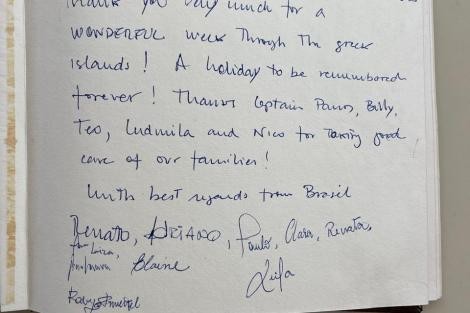 Thank you very much for a
WONDERFUL week Through The greek
islands! A holiday to be remembered
forever! Thanks Captain Panos, Billy,
Teo, Ludmila and Nico for Taking good
care of our families!
With best regards from Brasil
Renato, ADRIANO, Paulo, Clara, Renata,
Luiza,
Elaine
Leila